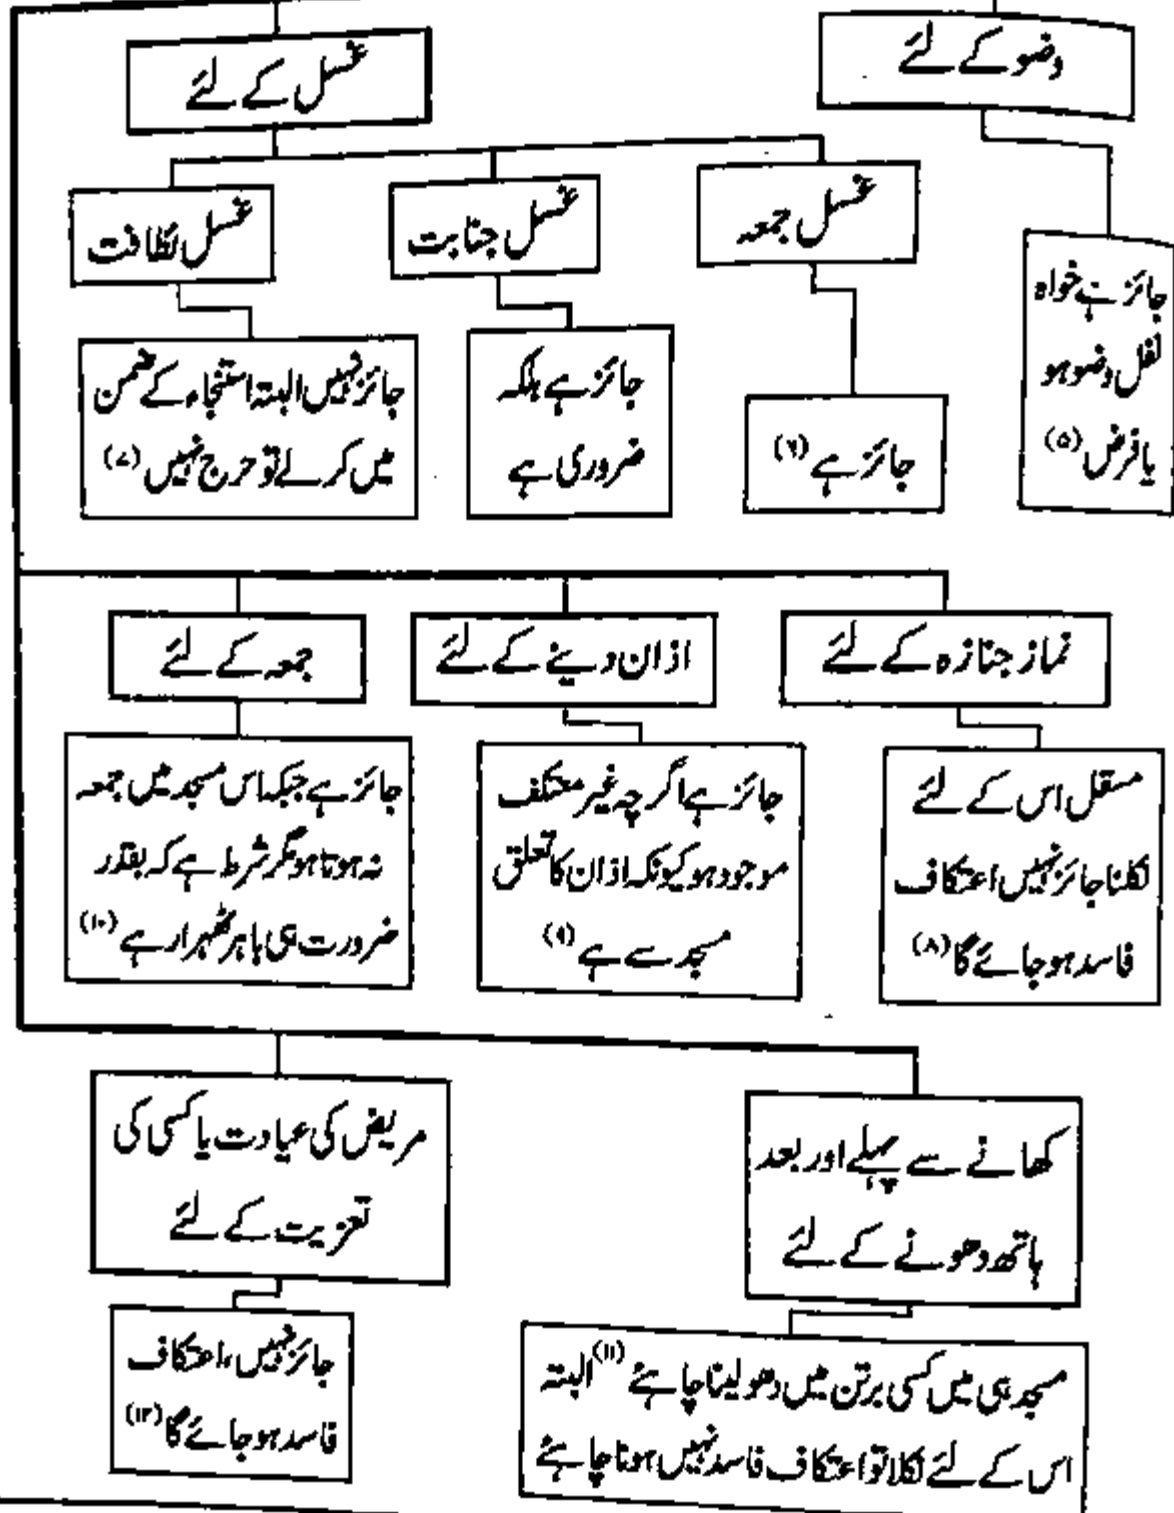 وضو کے لئے
غسل کے لئے
غسل جمعہ
غسل جنابت
غسل نظافت
جائز ہے خواہ
نفل وضو ہو
یا فرض (۵)
جائز ہے (۶)
جائز ہے بلکہ
ضروری ہے
جائز نہیں البتہ استنجاء کے ضمن
میں کر لے تو حرج نہیں (۷)
نماز جنازہ کے لئے
اذان دینے کے لئے
جمعہ کے لئے
مستقل اس کے لئے
نکلنا جائز نہیں اعتکاف
فاسد ہو جائے گا (۸)
جائز ہے اگر چہ غیر معتکف
موجود ہو کیونکہ اذان کا تعلق
مسجد سے ہے (۹)
جائز ہے جبکہ اس مسجد میں جمعہ
نہ ہوتا ہو مگر شرط ہے کہ بقدر
ضرورت ہی باہر ٹھہرا رہے (۱۰)
کھانے سے پہلے اور بعد
ہاتھ دھونے کے لئے
مریض کی عیادت یا کسی کی
تعزیت کے لئے
مسجد ہی میں کسی برتن میں دھو لینا چاہئے (۱۱) البتہ
اس کے لئے نکلا تو اعتکاف فاسد نہیں ہونا چاہئے
جائز نہیں، اعتکاف
فاسد ہو جائے گا (۱۲)